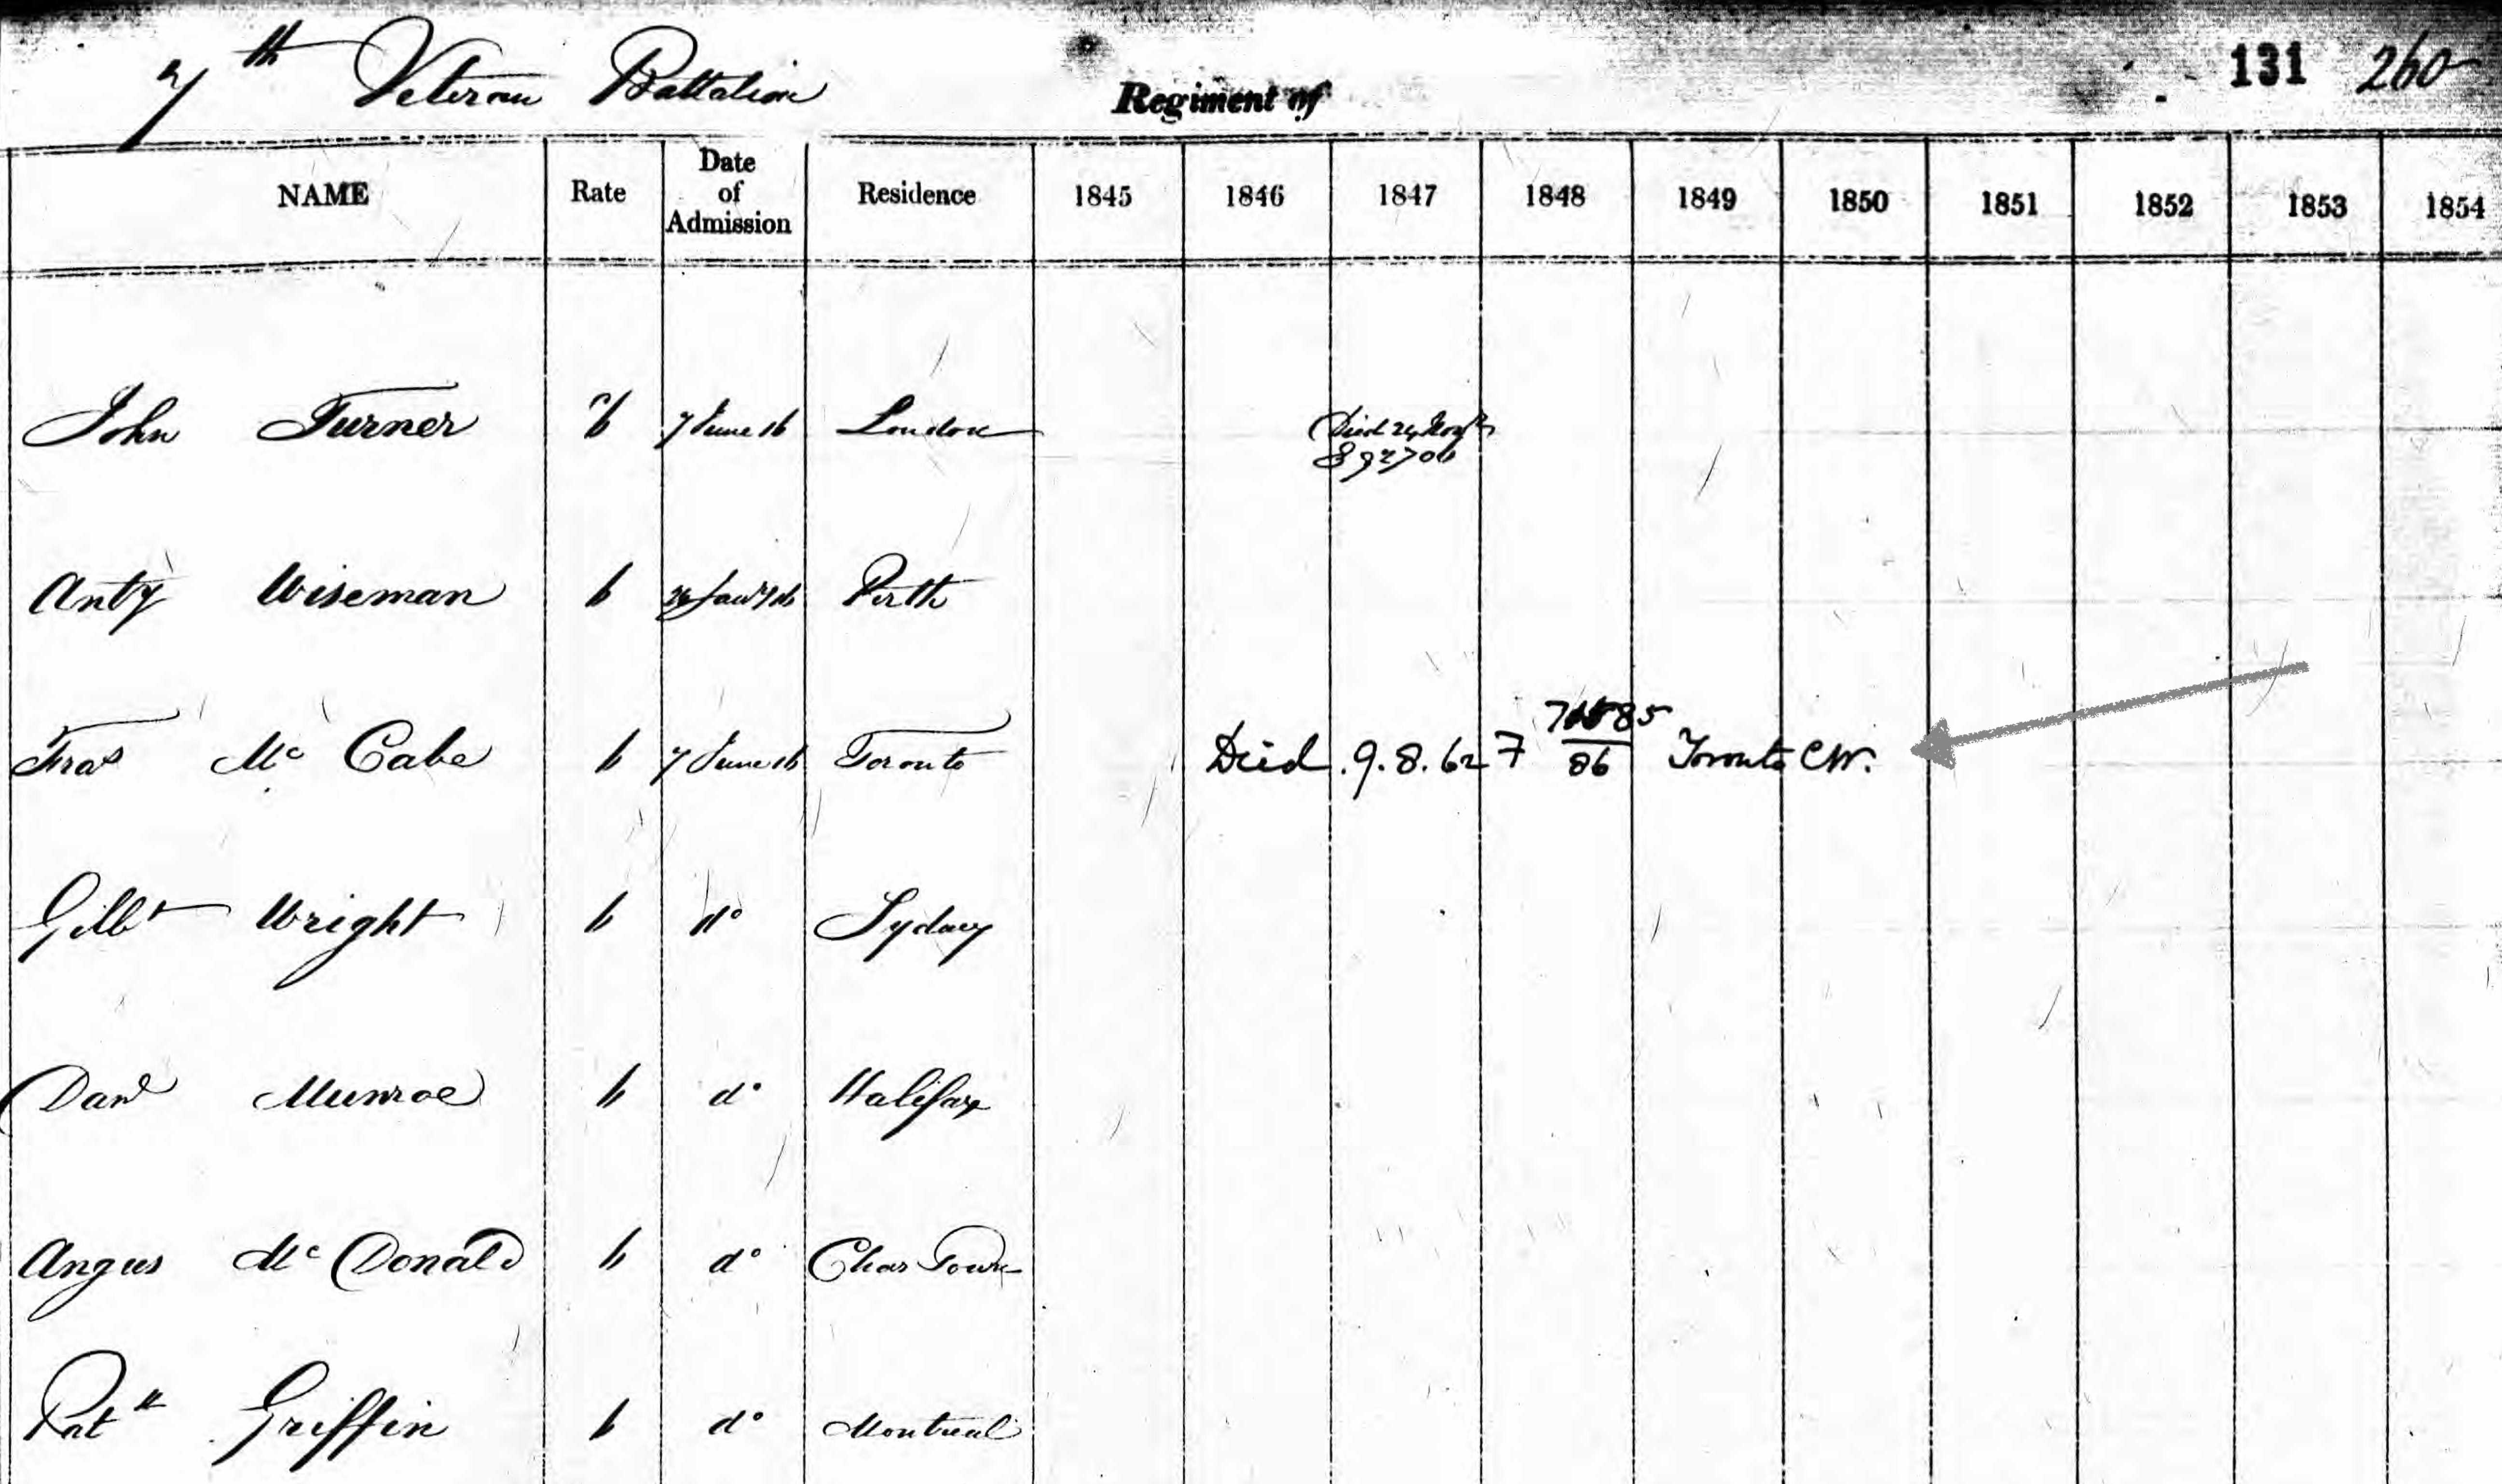 7th Veteran Battalion Regiment of 131 260
NAME Rate Date of Admission Residence 1845 1846 1847 1848 1849 1850 1851 1852 1853 1854
John Turner 7 June 16 London Died 24 Nov
892706
Anty Wiseman 6 Perth
Fras Mc Cabe 6 7 June 16 Toronto Died 9.8.62 7 85/86 Toronto C.W.
Gilbt Wright 6 do Sydney
Danl Munroe 6 do Halifax
Angus Mc Donald 6 do Char Town
Patk Griffin 6 do Montreal